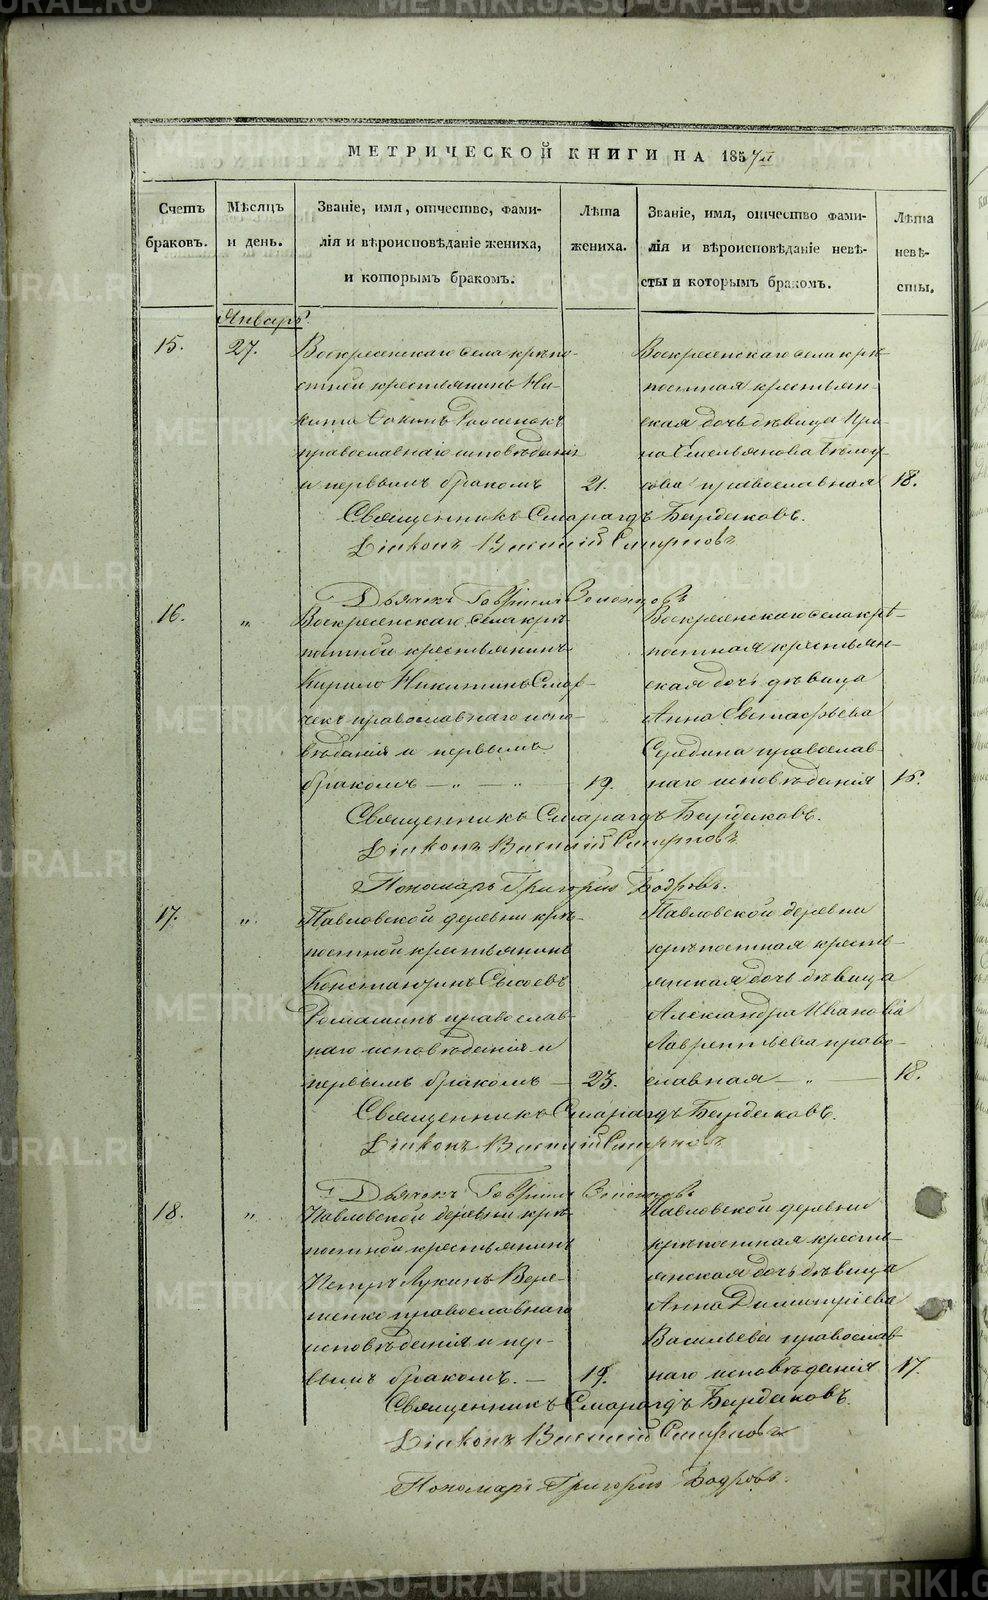 МЕТРИЧЕСКОЙ КНИГИ НА 1857й
Счетъ браковъ.
Мѣсяцъ и день.
Званіе, имя, отчество, фами-
лія и вѣроисповѣданіе жениха,
и которымъ бракомъ.
Лѣта
жениха.
Званіе, имя, отчество фами-
лія и вѣроисповѣданіе невѣ-
сты и которымъ бракомъ.
Лѣта
невѣ-
сты.
Январь.
15.
27.
Воскресенскаго села крѣпо-
стной крестьянинъ Ни-
кита
православнаго исповѣданія
и первымъ бракомъ
21.
Воскресенскаго села крѣ-
постная крестьян-
ская дочь дѣвица Ири-
на Емельянова Бѣлоу-
сова православная
18.
Священникъ Смарагдъ Бурдаковъ.
Діаконъ Василій Смирновъ
Дьячекъ Гавріилъ
16.
"
Воскресенскаго села крѣ-
постной крестьянинъ
Кирило Никитинъ
православнаго испо-
вѣданія и первымъ
бракомъ — „ — „
19.
Воскресенскаго села крѣ-
постная крестьян-
ская дочь дѣвица
Анна Евстафьева
Середина православ-
наго исповѣданія
16.
Священникъ Смарагдъ Бурдаковъ.
Діаконъ Василій Смирновъ
Пономарь Григорій Бодровъ.
17.
"
Павловской деревни крѣ-
постной крестьянинъ
Константинъ Сысоевъ
Ромашинъ православ-
наго исповѣданія и
первымъ бракомъ —
23.
Павловской деревни
крѣпостная кресть-
янская дочь дѣвица
Александра Иванова
Лаврентьева право-
славная — „ —
18.
Священникъ Смарагдъ Бурдаковъ.
Діаконъ Василій Смирновъ
Дьячекъ Гавріилъ
18.
"
Павловской деревни крѣ-
постной крестьянинъ
Петръ Лукинъ Вере-
тенко православнаго
исповѣданія и пер-
вымъ бракомъ. —
19.
Павловской деревни
крѣпостная кресть-
янская дочь дѣвица
Анна Димитріева
Васильева православ-
наго исповѣданія
17.
Священникъ Смарагдъ Бурдаковъ.
Діаконъ Василій Смирновъ
Пономарь Григорій Бодровъ.
METRIKI.GASO-URAL.RU